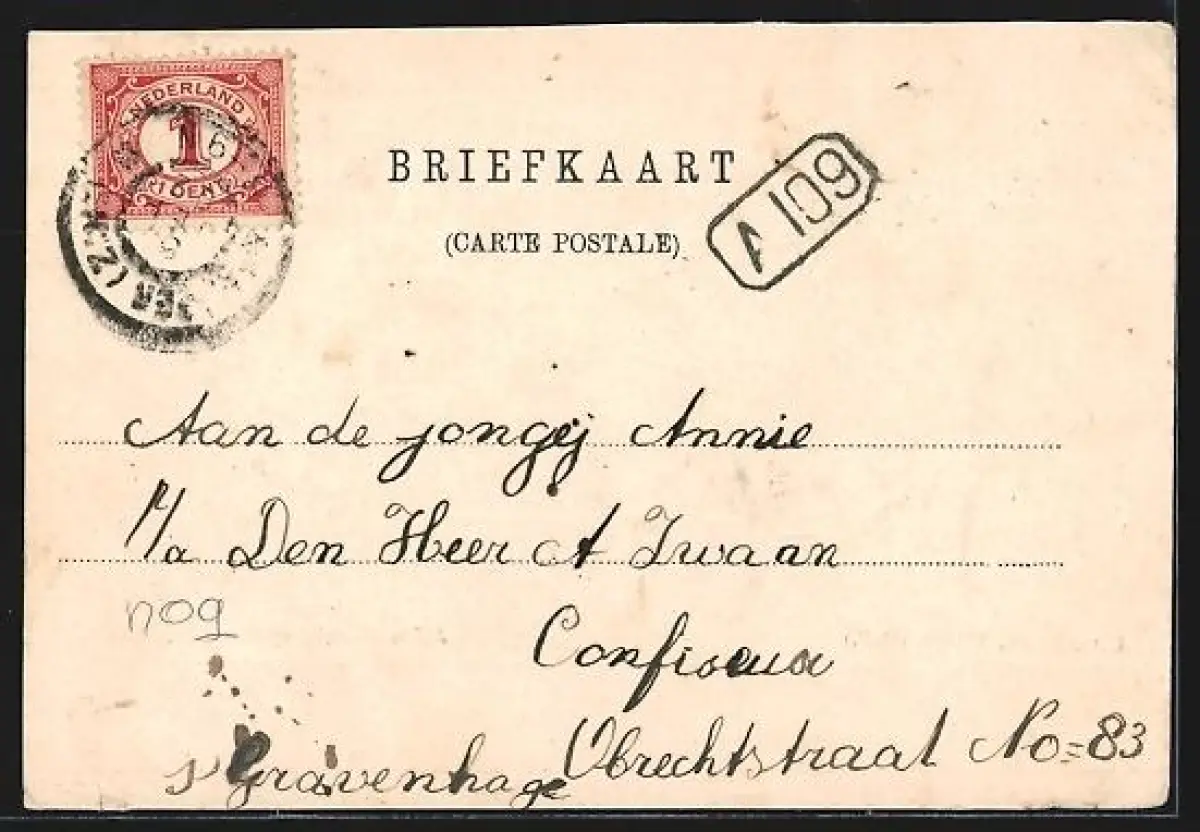 NEDERLAND
1
CENT
6
BRIEFKAART
(CARTE POSTALE)
A 109
Aan de jongej Annie
P/a Den Heer A Zwaan
Confiseur
nog
s Gravenhage Obrechtstraat No=83